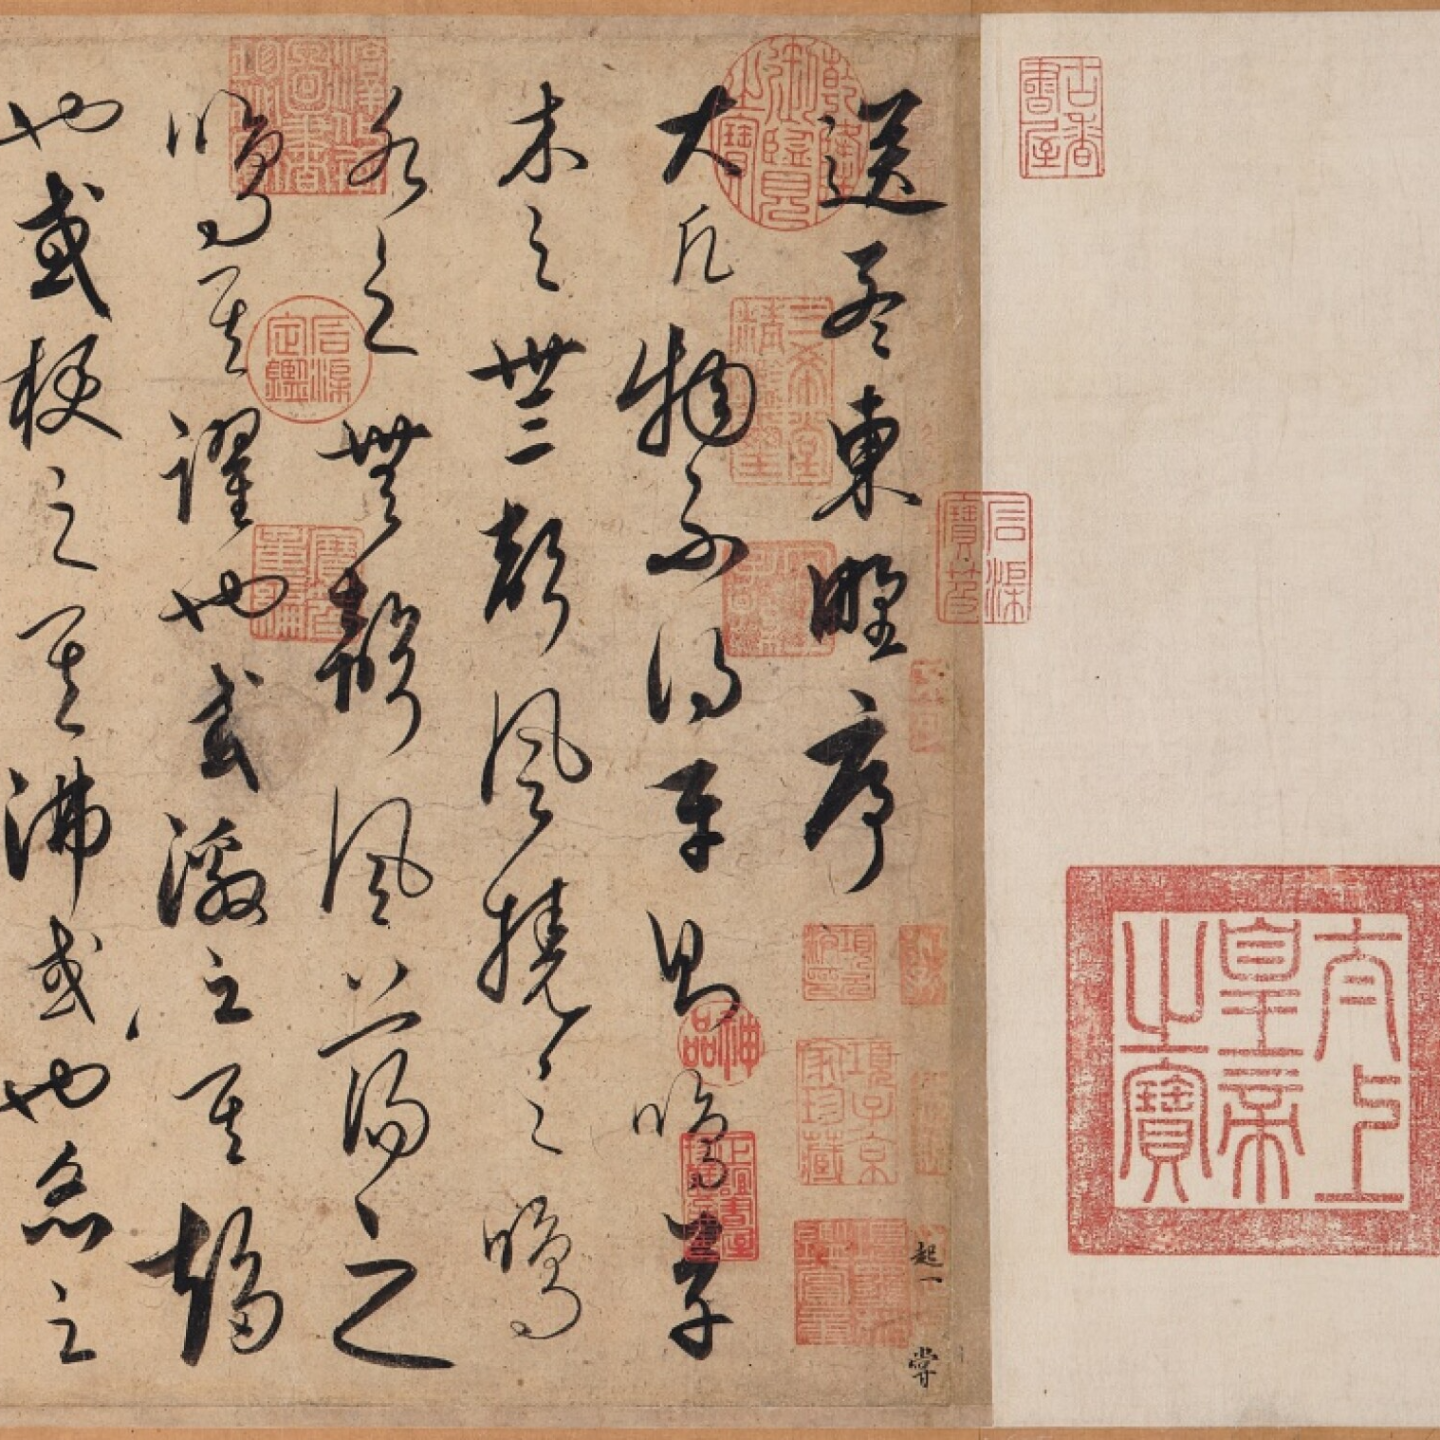 古香書屋
太上皇帝之寶
石渠寶笈
送孟東野序
乾隆御覽之寶
三希堂精鑑璽
項子京家珍藏
神品
嘗
大凡物不得平則鳴草
木之無聲風撓之鳴
水之無聲風蕩之
石渠定鑑
鳴其躍也或激之其趨
也或梗之其沸或也炙之